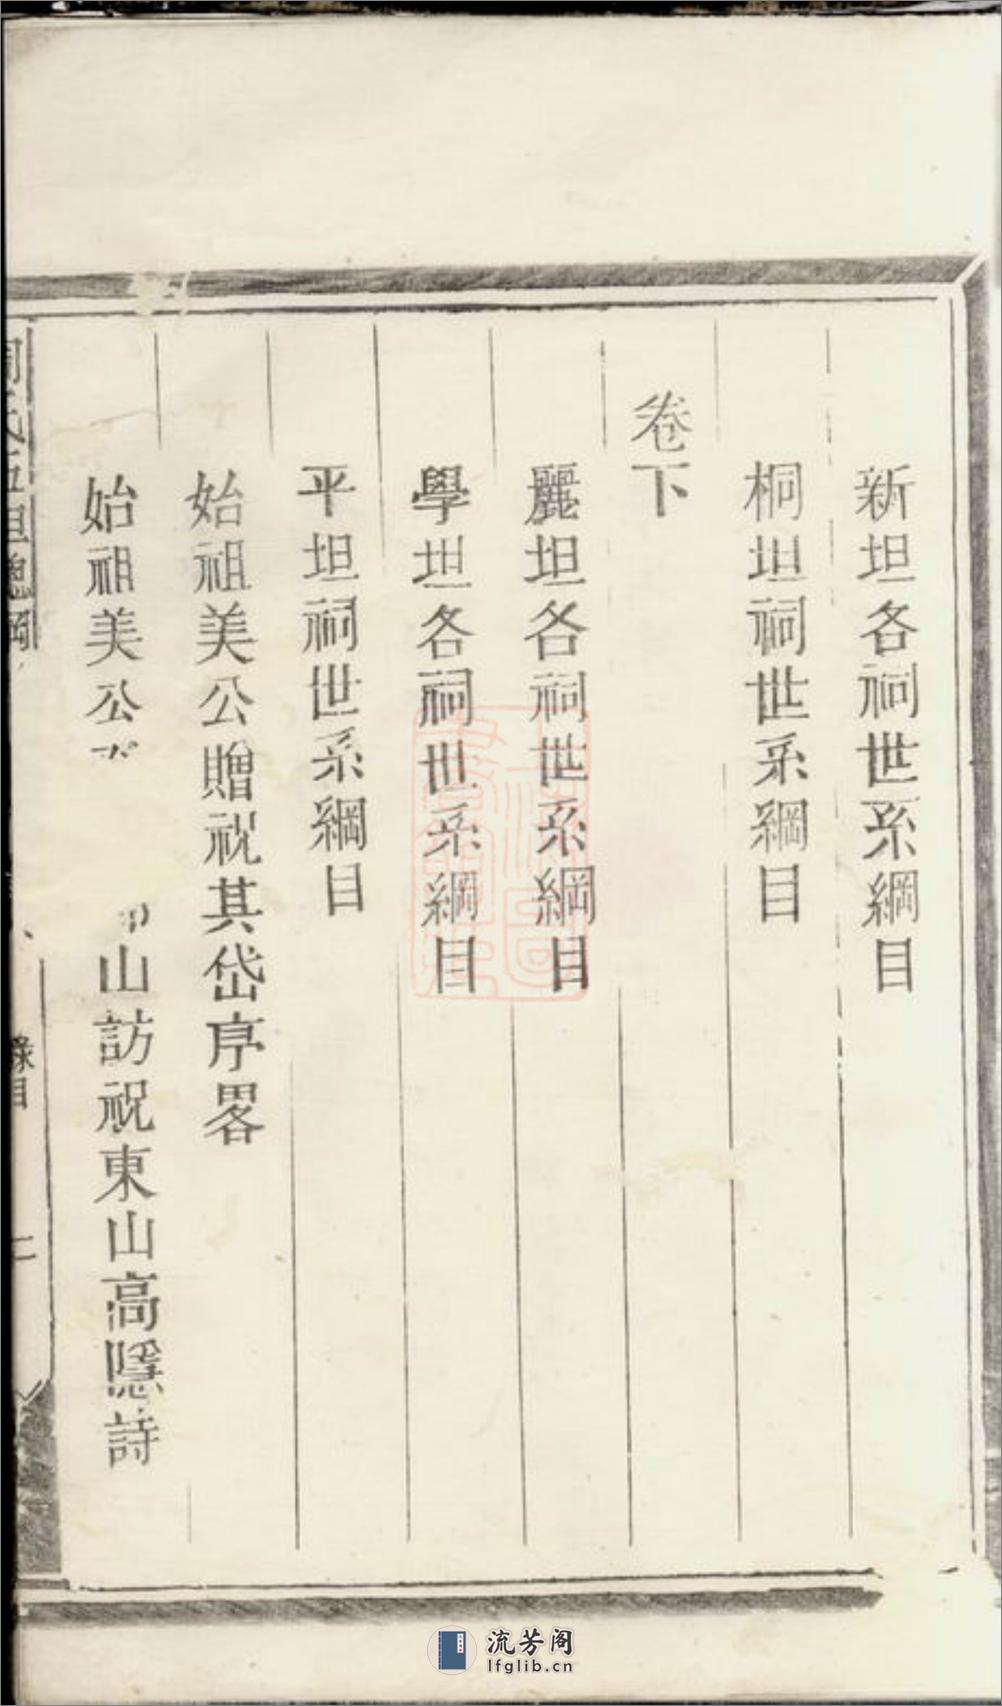 新坦各祠世系綱目
桐坦祠世系綱目
卷下
麗坦各祠世系綱目
學坦各祠世系綱目
平坦祠世系綱目
始祖美公贈祝其岱序畧
始祖美公
山訪祝東山高隱詩
目
二
流芳阁
lfglib.cn